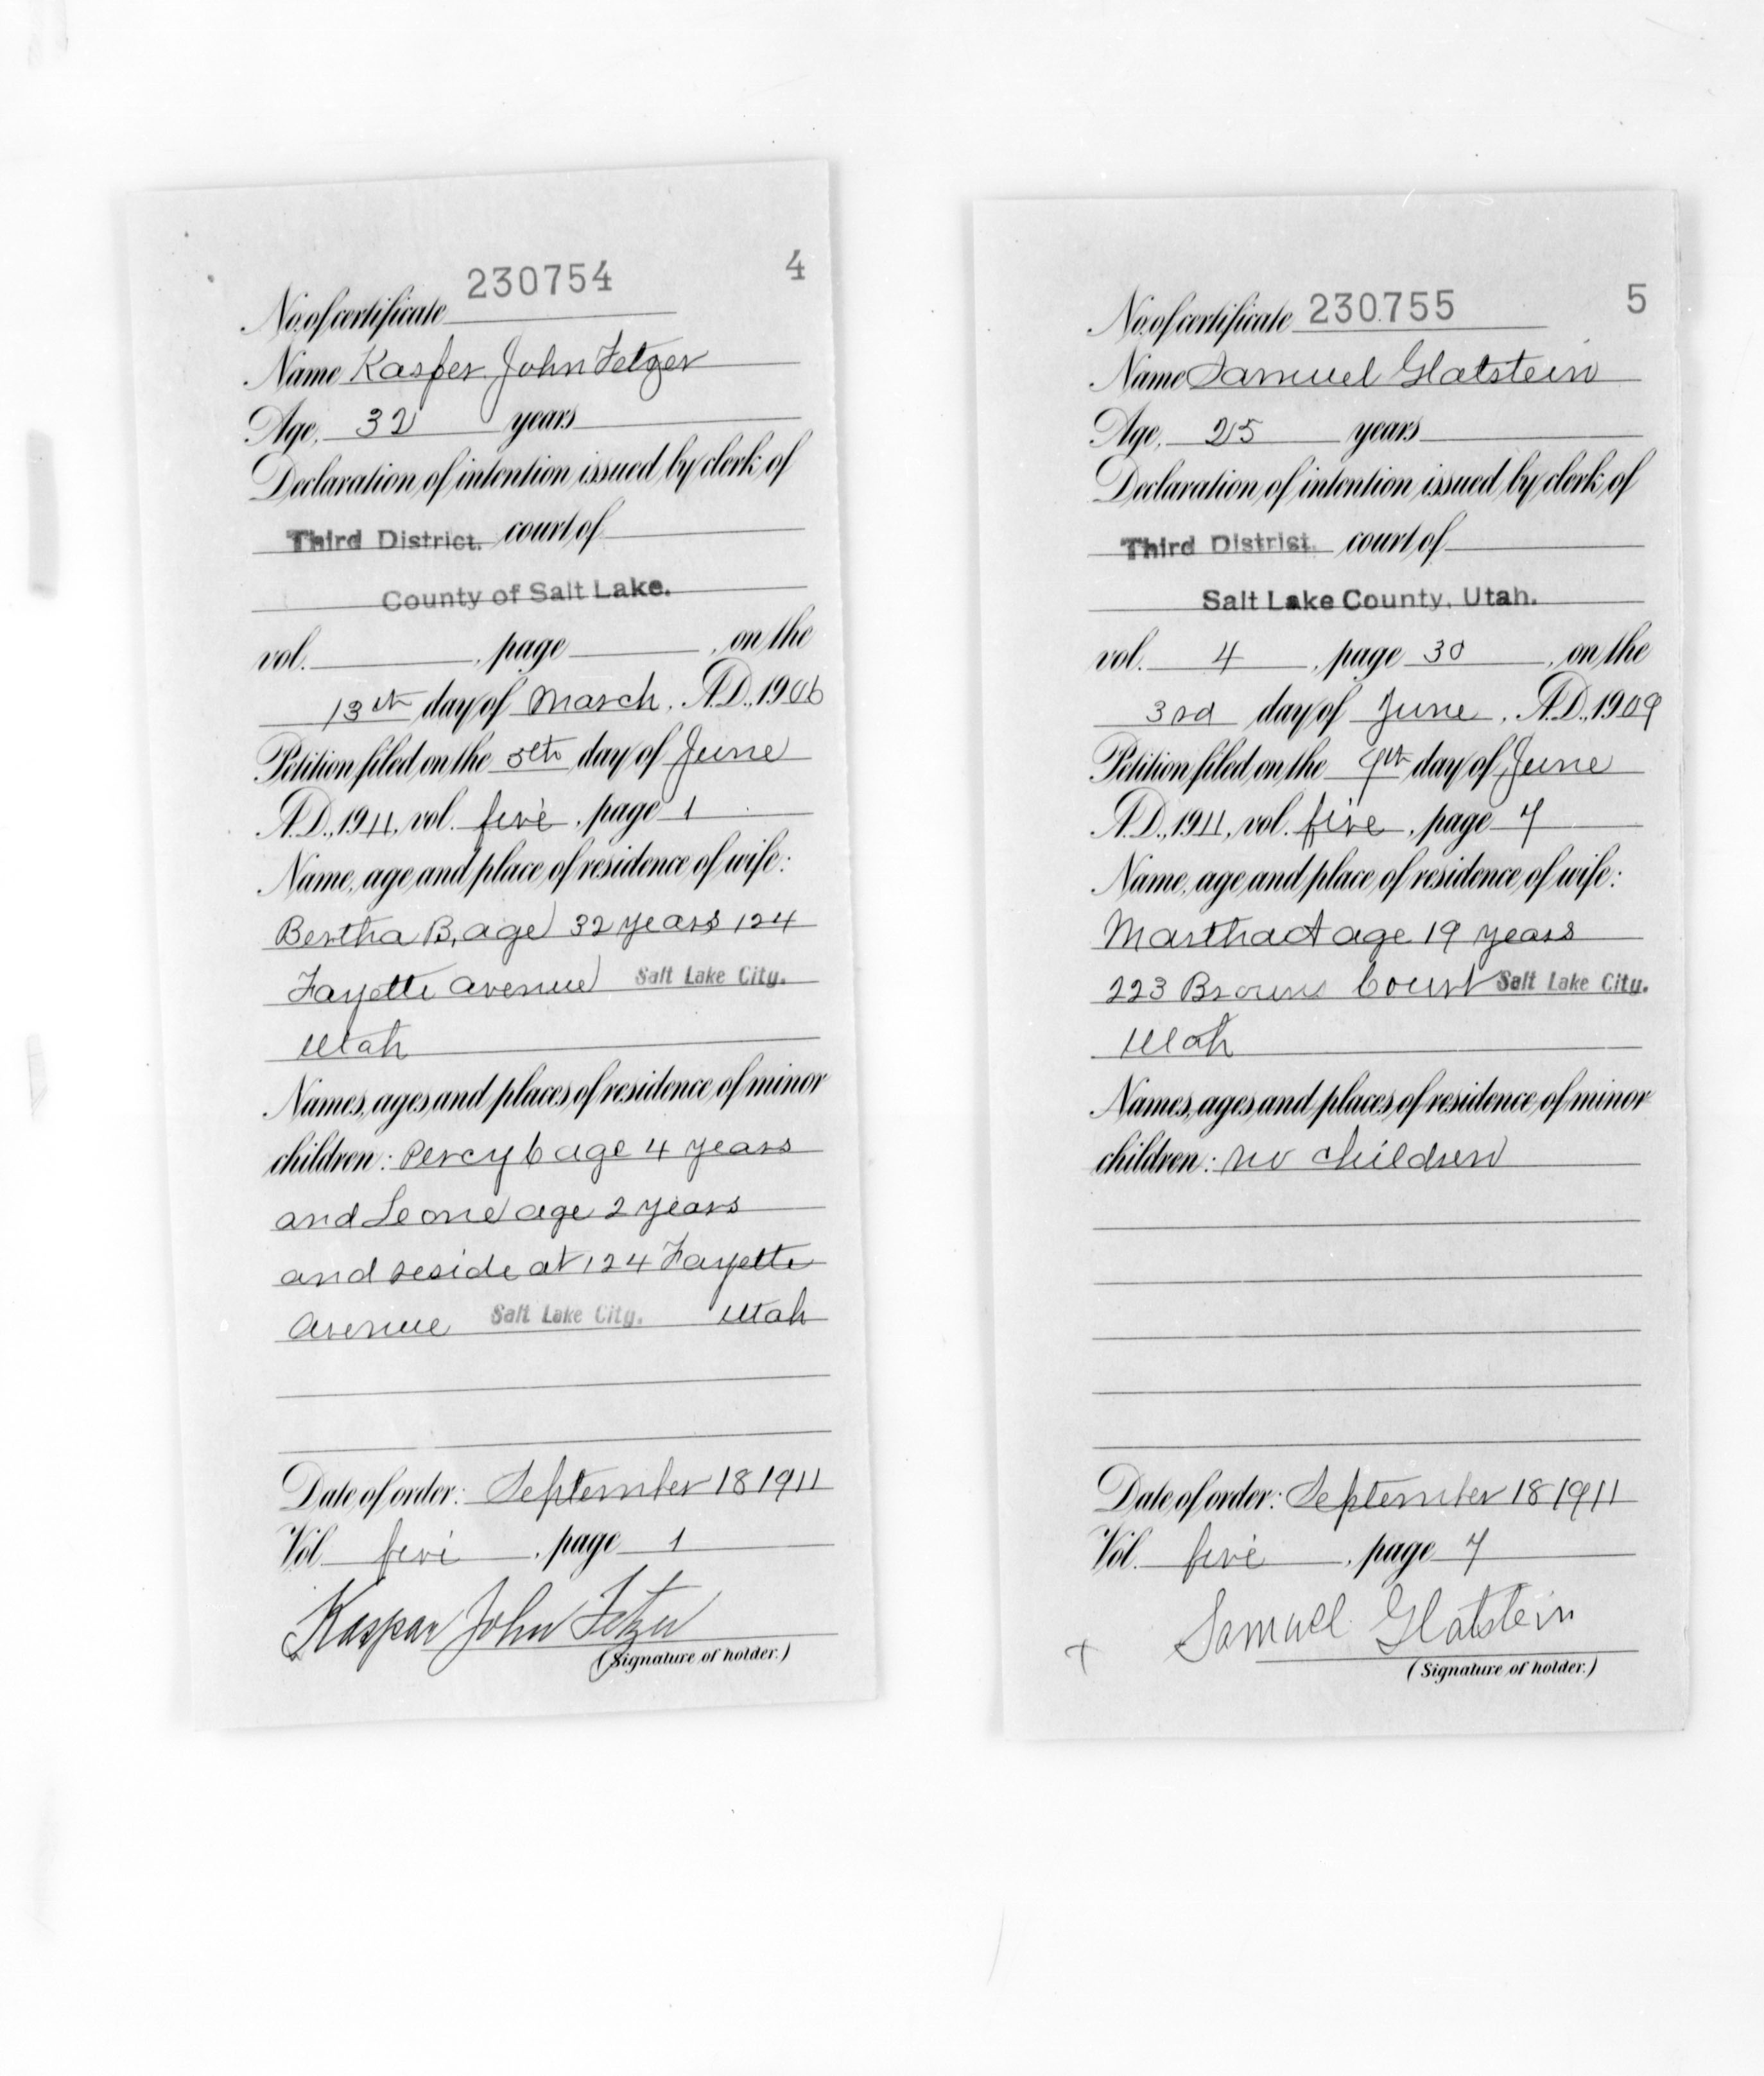 230754 4
No. of certificate
Name Kasper John Fetzer
Age, 32 years
Declaration of intention issued by clerk of
Third District. court of
County of Salt Lake.
vol. , page , on the
13th day of March, A.D., 1906
Petition filed on the 5th day of June
A.D., 1911, vol. five, page 1
Name, age and place of residence of wife:
Bertha B, age 32 years 124
Fayette Avenue Salt Lake City.
Utah
Names, ages and places of residence of minor
children: Percy C age 4 years
and Leone age 2 years
and reside at 124 Fayette
Avenue Salt Lake City. Utah
Date of order: September 18 1911
Vol. five, page 1
Kaspar John Fetzer
(Signature of holder.)
No. of certificate 230755 5
Name Samuel Glatstein
Age, 25 years
Declaration of intention issued by clerk of
Third District. court of
Salt Lake County, Utah.
vol. 4, page 30, on the
3rd day of June, A.D., 1909
Petition filed on the 9th day of June
A.D., 1911, vol. five, page 7
Name, age and place of residence of wife:
Martha age 19 years
223 Browns Court Salt Lake City.
Utah
Names, ages and places of residence of minor
children: no children
Date of order: September 18 1911
Vol. five, page 7
Samuel Glatstein
(Signature of holder.)